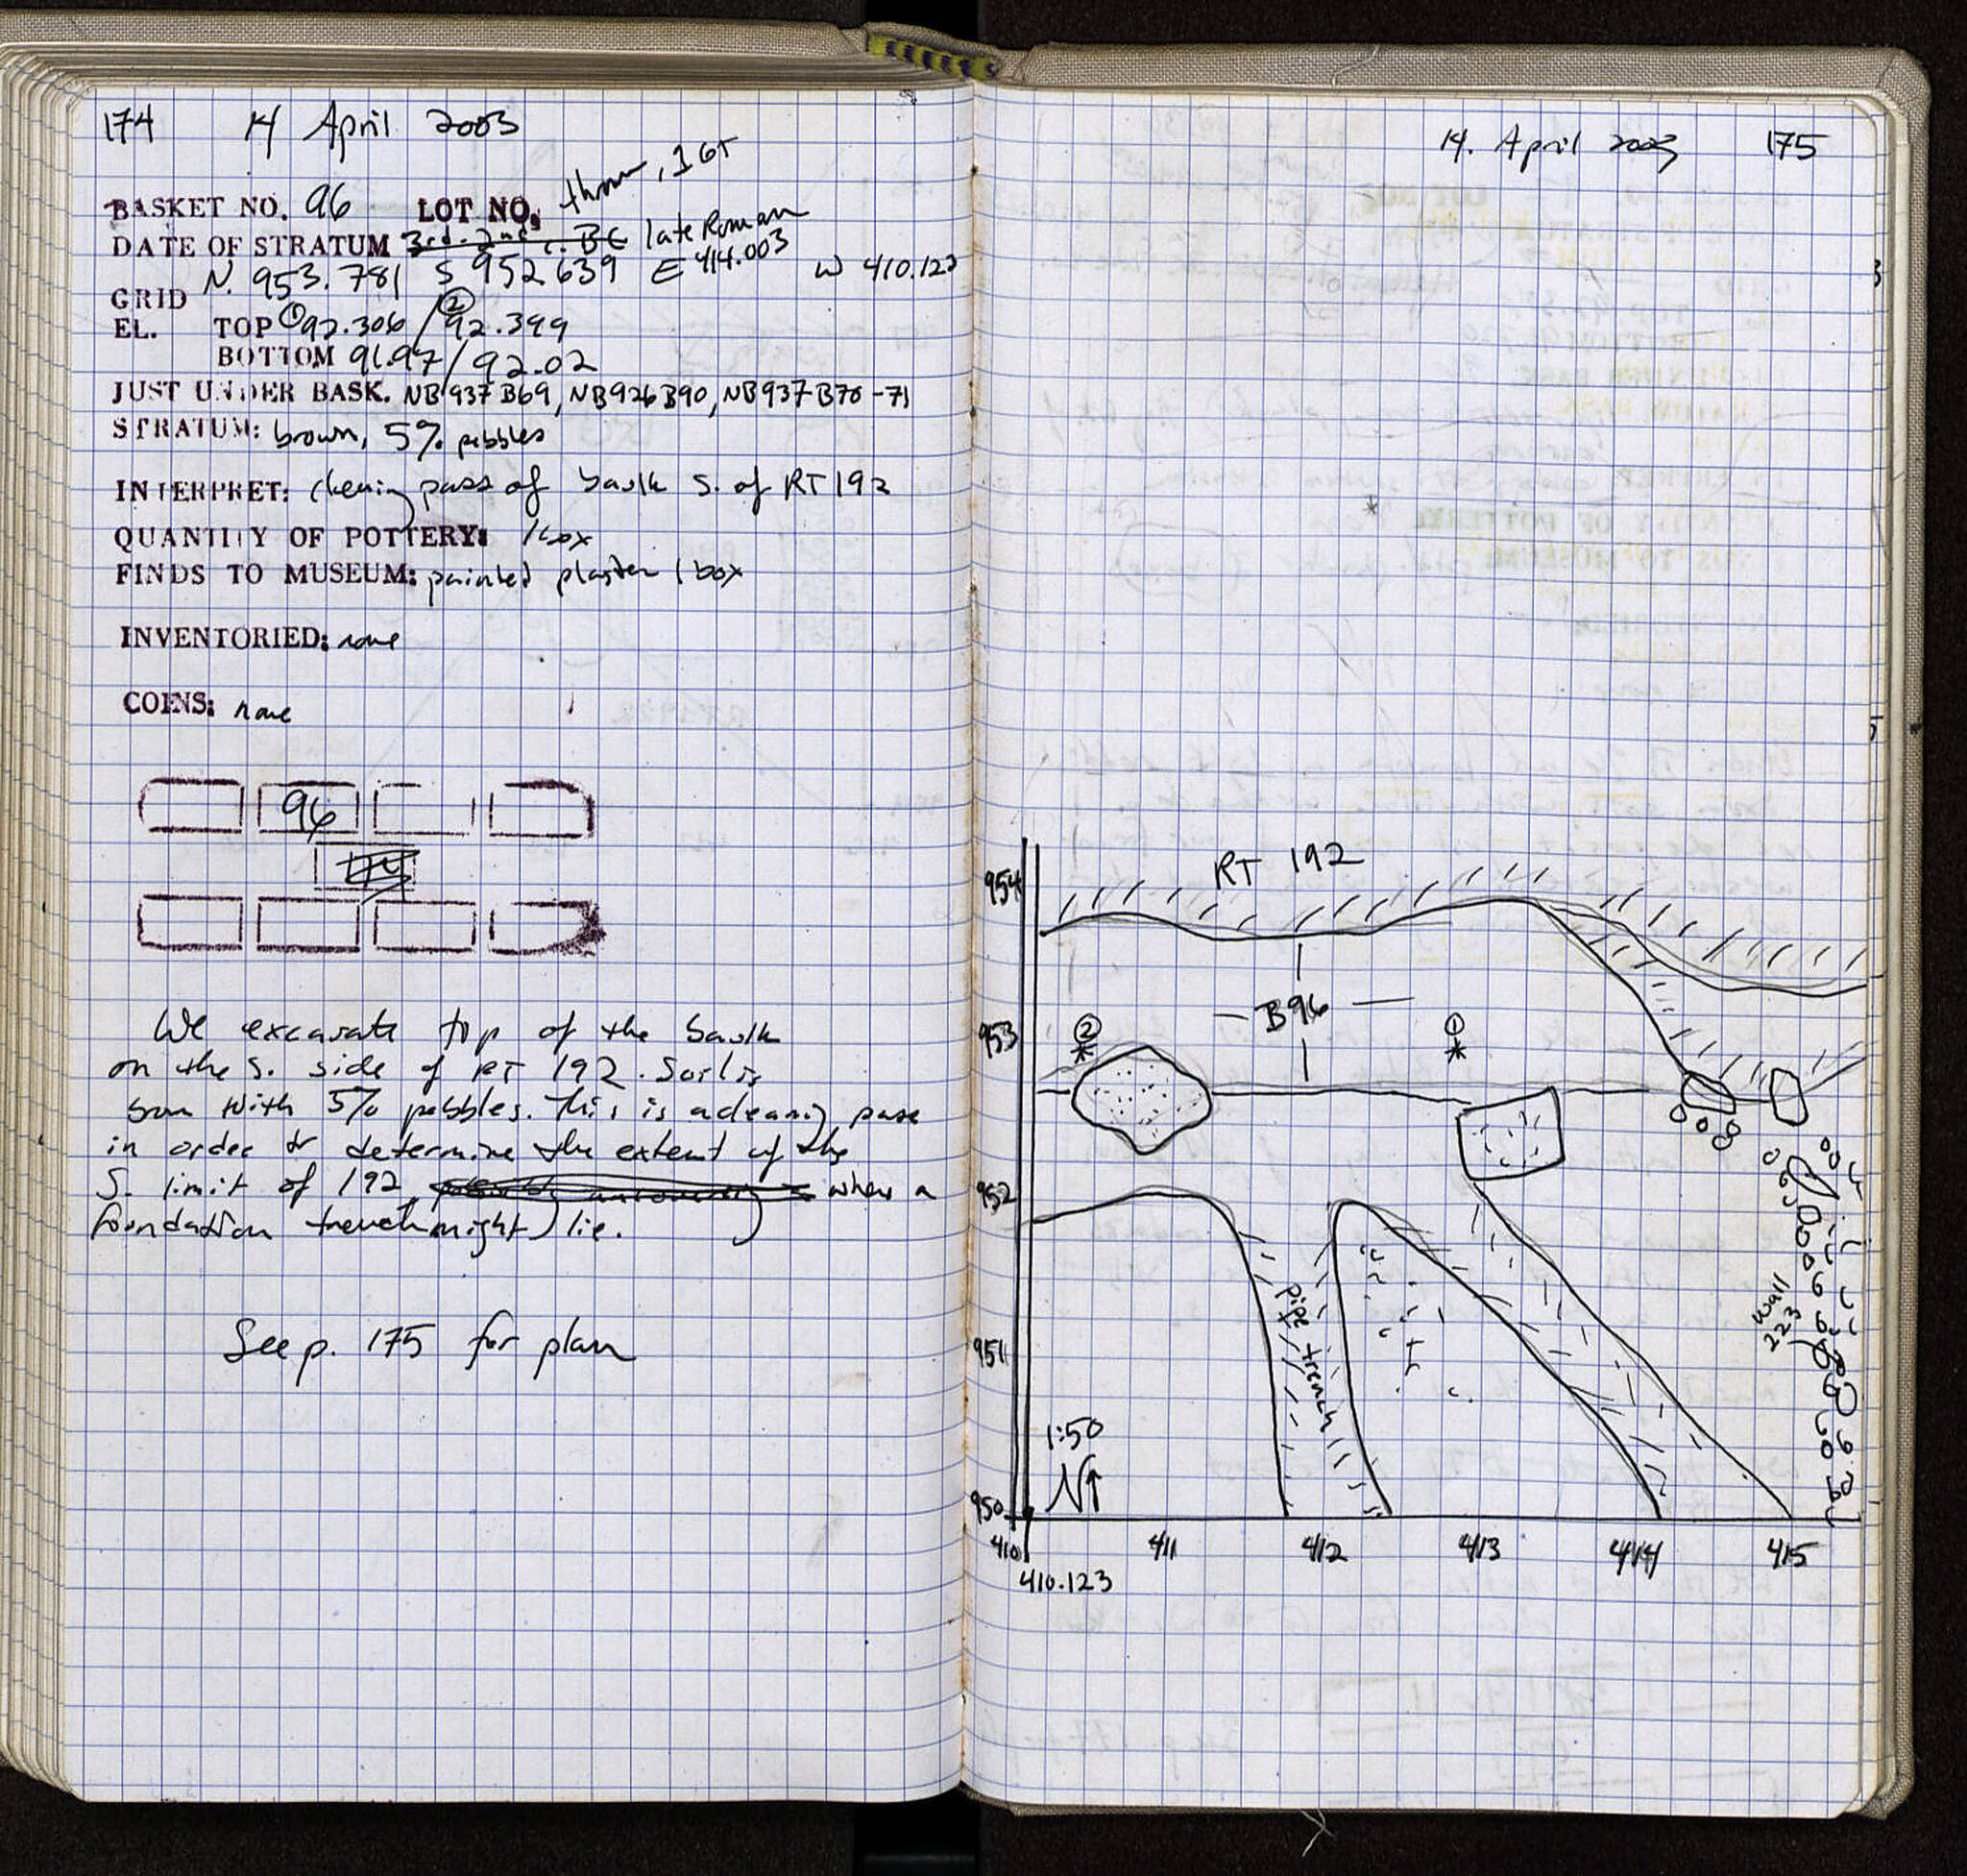 174 14 April 2003
BASKET NO. 96 LOT NO. throw, 1 GT
DATE OF STRATUM 3rd-2nd c. BC late Roman
N. 953.781 S 952639 E 414.003 W 410.123
GRID
EL. TOP ① 92.306 / ② 92.399
BOTTOM 91.97 / 92.02
JUST UNDER BASK. NB937 B69, NB926 B90, NB937 B70-71
STRATUM: brown, 5% pebbles
INTERPRET: cleaning pass of baulk S. of RT 192
QUANTITY OF POTTERY: 1 box
FINDS TO MUSEUM: painted plaster 1 box
INVENTORIED: none
COINS: none
96
We excavate top of the baulk
on the S. side of RT 192. Soil is
brown with 5% pebbles. This is a cleaning pass
in order to determine the extent of the
S. limit of 192, where a
foundation trench might lie.
See p. 175 for plan
14. April 2003 175
RT 192
954
B96
953
②
*
①
*
952
951
950
pipe trench
wall
223
1:50
N↑
410 411 412 413 414 415
410.123